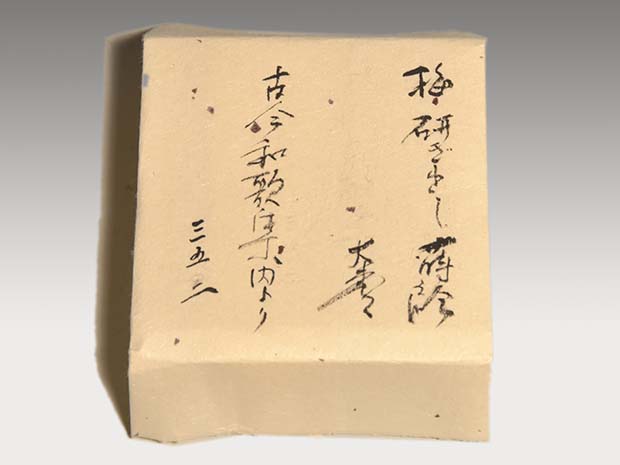 梅 研ぎ出し 蒔絵
大棗
古今和歌集内より
三五二